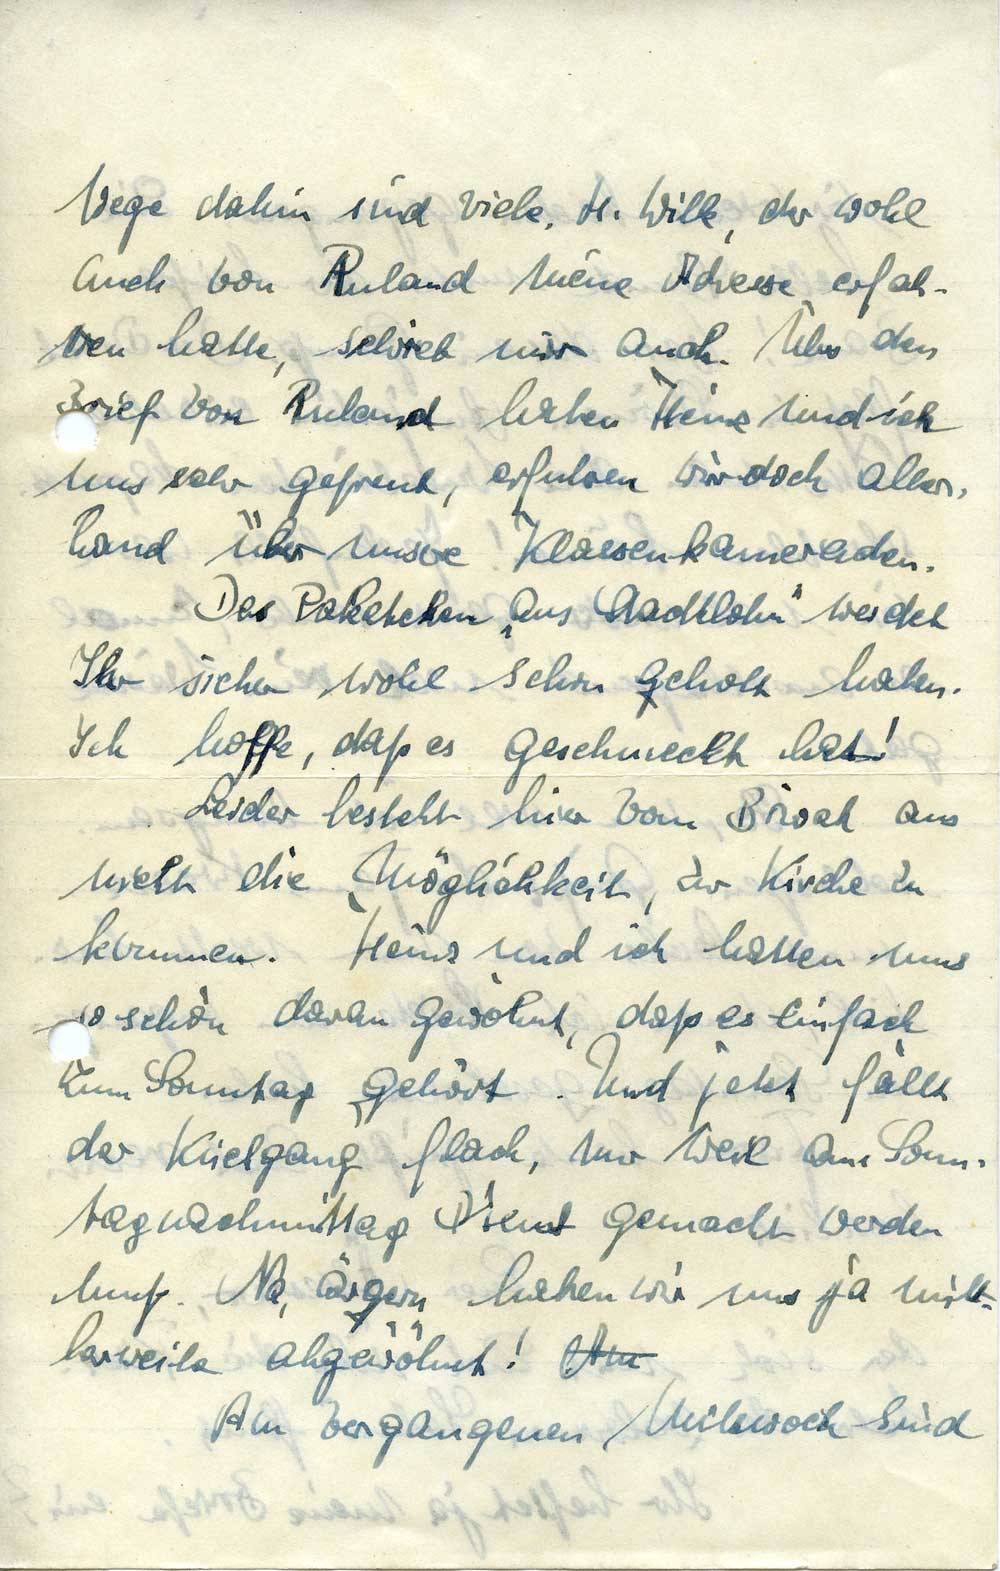 Wege dahin sind viele. H. Wilk, der wohl
auch von Ruland meine Adresse erfah-
ren hatte, schrieb mir auch. Über den
Brief von Ruland haben Heinz und ich
uns sehr gefreut, erfuhren wir doch aller-
hand über unsre Klassenkameraden.
Das Paketchen „aus Stadtlohn" werdet
Ihr sicher wohl schon geholt haben.
Ich hoffe, daß es geschmeckt hat!
Leider besteht hier vom Biwak aus
nicht die Möglichkeit, zur Kirche zu
kommen. Heinz und ich hatten uns
so schön daran gewöhnt, daß es einfach
zum Sonntag gehört. Und jetzt fällt
der Kirchgang flach, nur weil am Sonn-
tagnachmittag Dienst gemacht werden
muß. Na, ärgern haben wir uns ja mitt-
lerweile abgewöhnt! Am
Am vergangenen Mittwoch sind
Ihr hebt ja meine Briefe